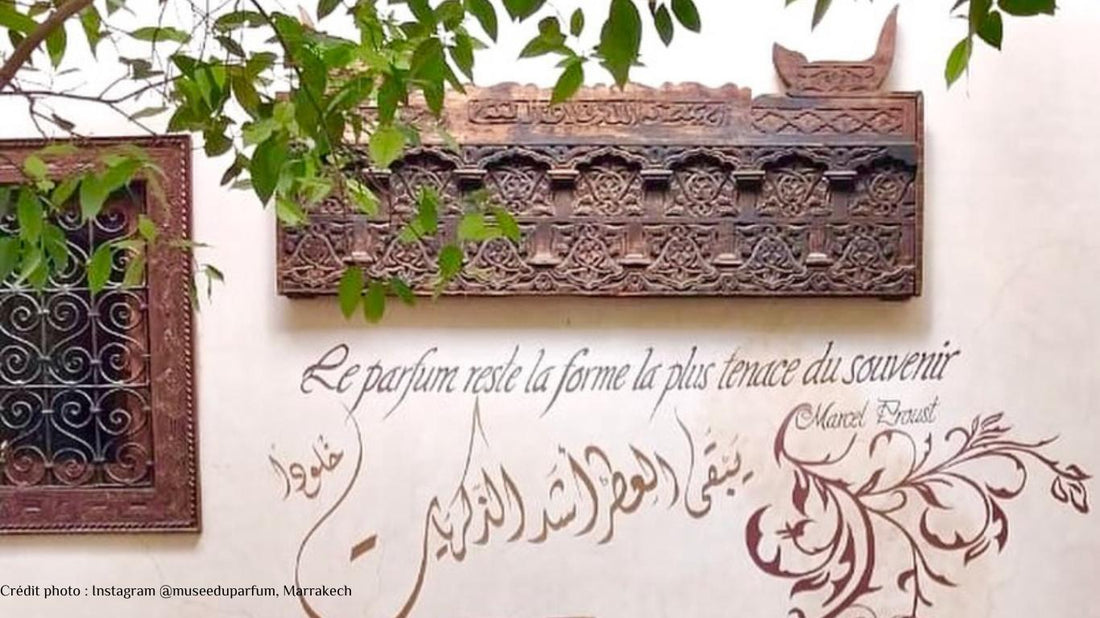 Le parfum reste la forme la plus tenace du souvenir
Marcel Proust
يَبْقَى العِطْرُ أشَد الذّكريات خُلوداً
Crédit photo : Instagram @museeduparfum, Marrakech